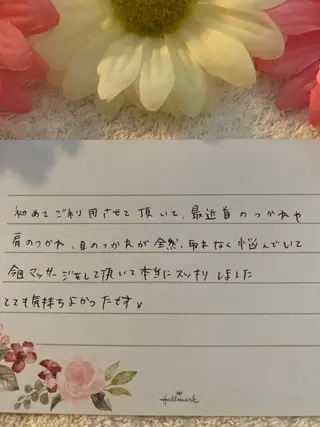 初めてご利用させて頂いて、最近首のつかれや
肩のつかれ、目のつかれが全然、取れなく悩んでいて
今回マッサージをして頂いて本当にスッキリしました
とても気持ちよかったです。
Hallmark